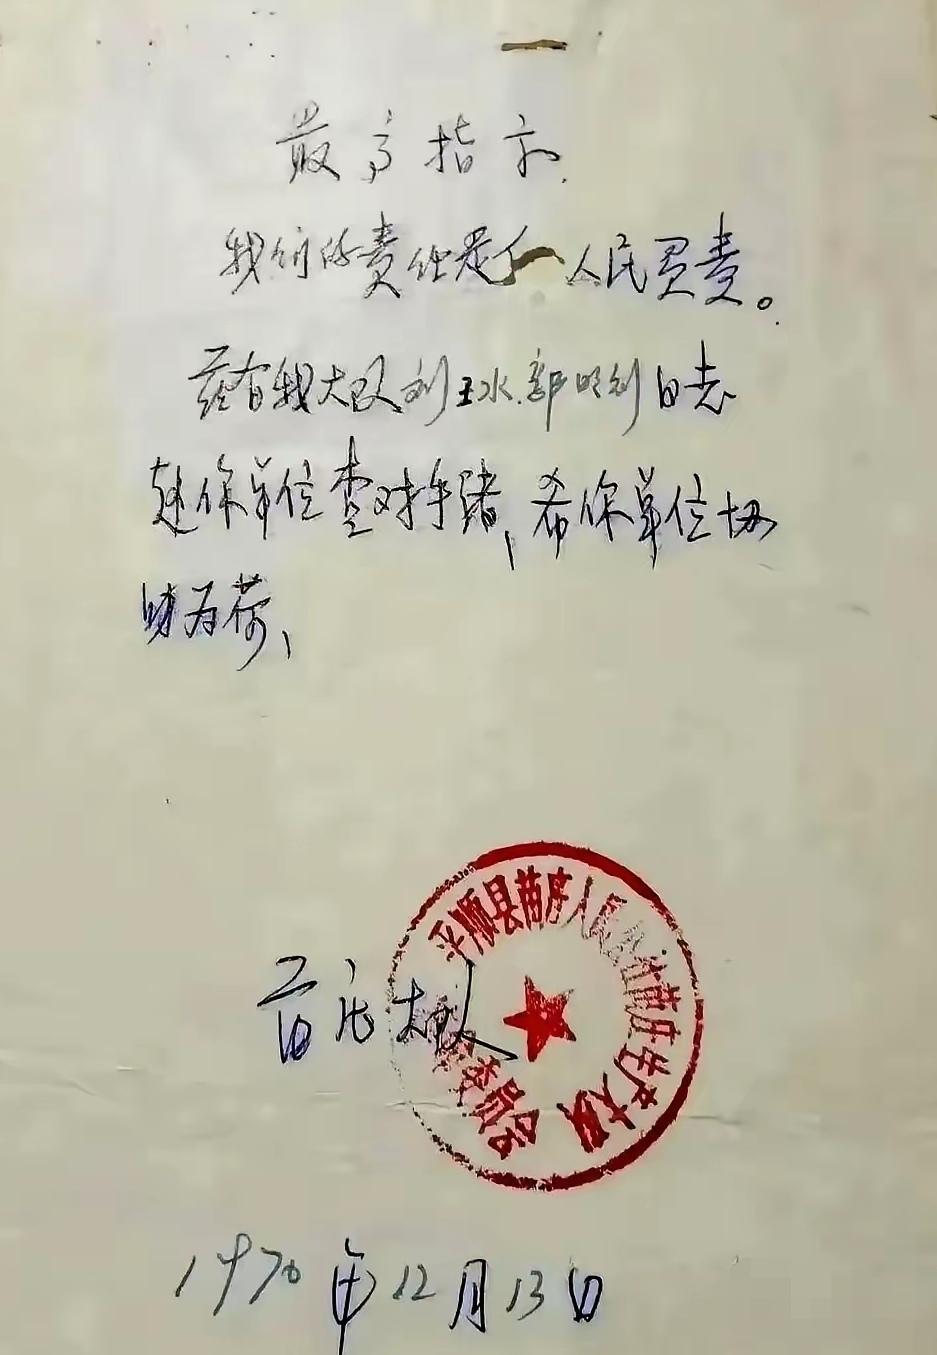 最高指示
我们的责任是 人民负责。
兹有我大队刘王水.郭明剑同志
赴你单位查对手续,希你单位协
助为荷、
平顺县苗庄人民公社苗庄生产大队
委员会
苗庄大队
1970年12月13日